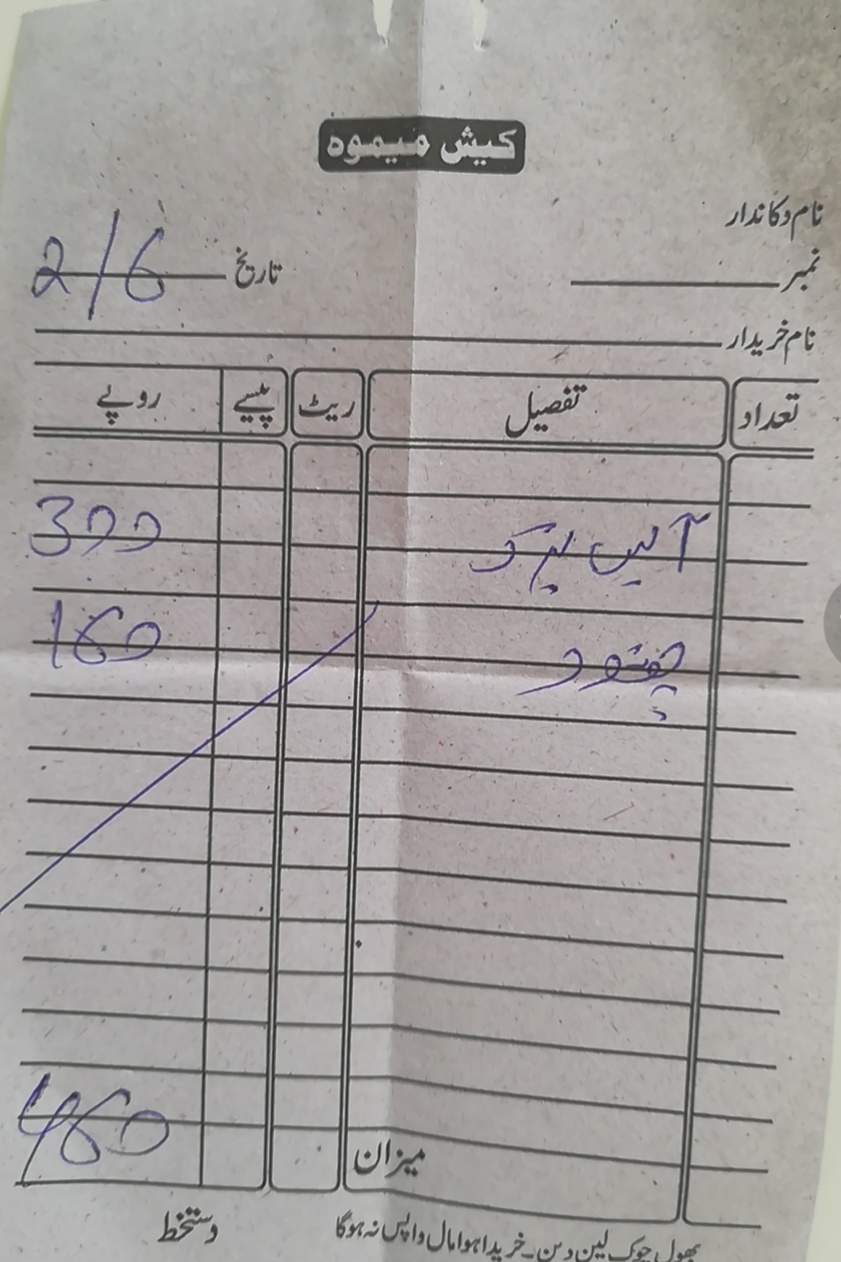 کیش میمو
نام دکاندار
نمبر
تاریخ 2/6
نام خریدار
تعداد تفصیل ریٹ پیسے روپے
300
160
میزان 460
بھول چوک لین دین۔ خریدا ہوا مال واپس نہ ہوگا
دستخط